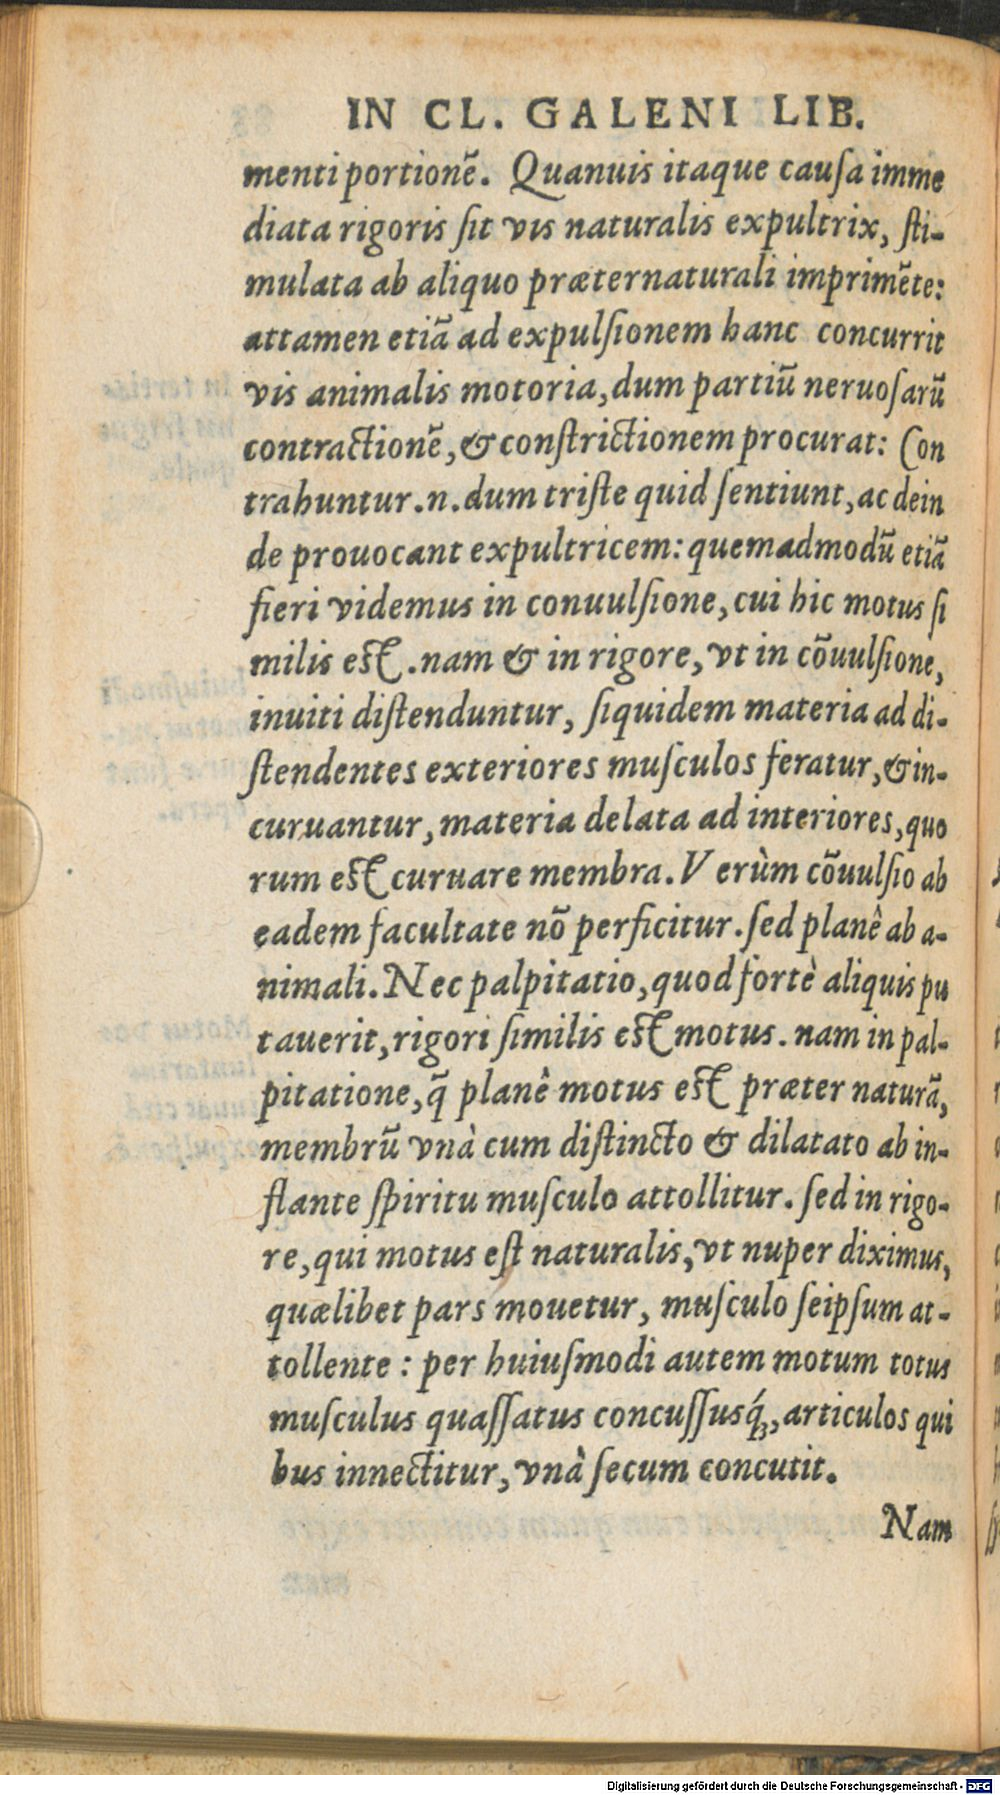 IN CL. GALENI LIB.
menti portionē. Quanuis itaque cauſa imme
diata rigoris ſit vis naturalis expultrix, ſti-
mulata ab aliquo præternaturali imprimēte:
attamen etiā ad expulſionem hanc concurrit
vis animalis motoria, dum partiū neruoſarū
contractionē, & conſtrictionem procurat: Con
trahuntur .n. dum triſte quid ſentiunt, ac dein
de prouocant expultricem: quemadmodū etiā
fieri videmus in conuulſione, cui hic motus ſi
milis eſt. nam & in rigore, vt in cōuulſione,
inuiti diſtenduntur, ſiquidem materia ad di-
ſtendentes exteriores muſculos feratur, & in-
curuantur, materia delata ad interiores, quo
rum eſt curuare membra. Verùm cōuulſio ab
eadem facultate nō perficitur. ſed planê ab a-
nimali. Nec palpitatio, quod fortè aliquis pu
tauerit, rigori ſimilis eſt motus. nam in pal-
pitatione, q̄ planê motus eſt præter naturā,
membrū vnà cum diſtincto & dilatato ab in-
flante ſpiritu muſculo attollitur. ſed in rigo-
re, qui motus eſt naturalis, vt nuper diximus,
quælibet pars mouetur, muſculo ſeipſum at-
tollente : per huiuſmodi autem motum totus
muſculus quaſſatus concuſſusq́ꝫ, articulos qui
bus innectitur, vnà ſecum concutit.
Nam
Digitalisierung gefördert durch die Deutsche Forschungsgemeinschaft - DFG